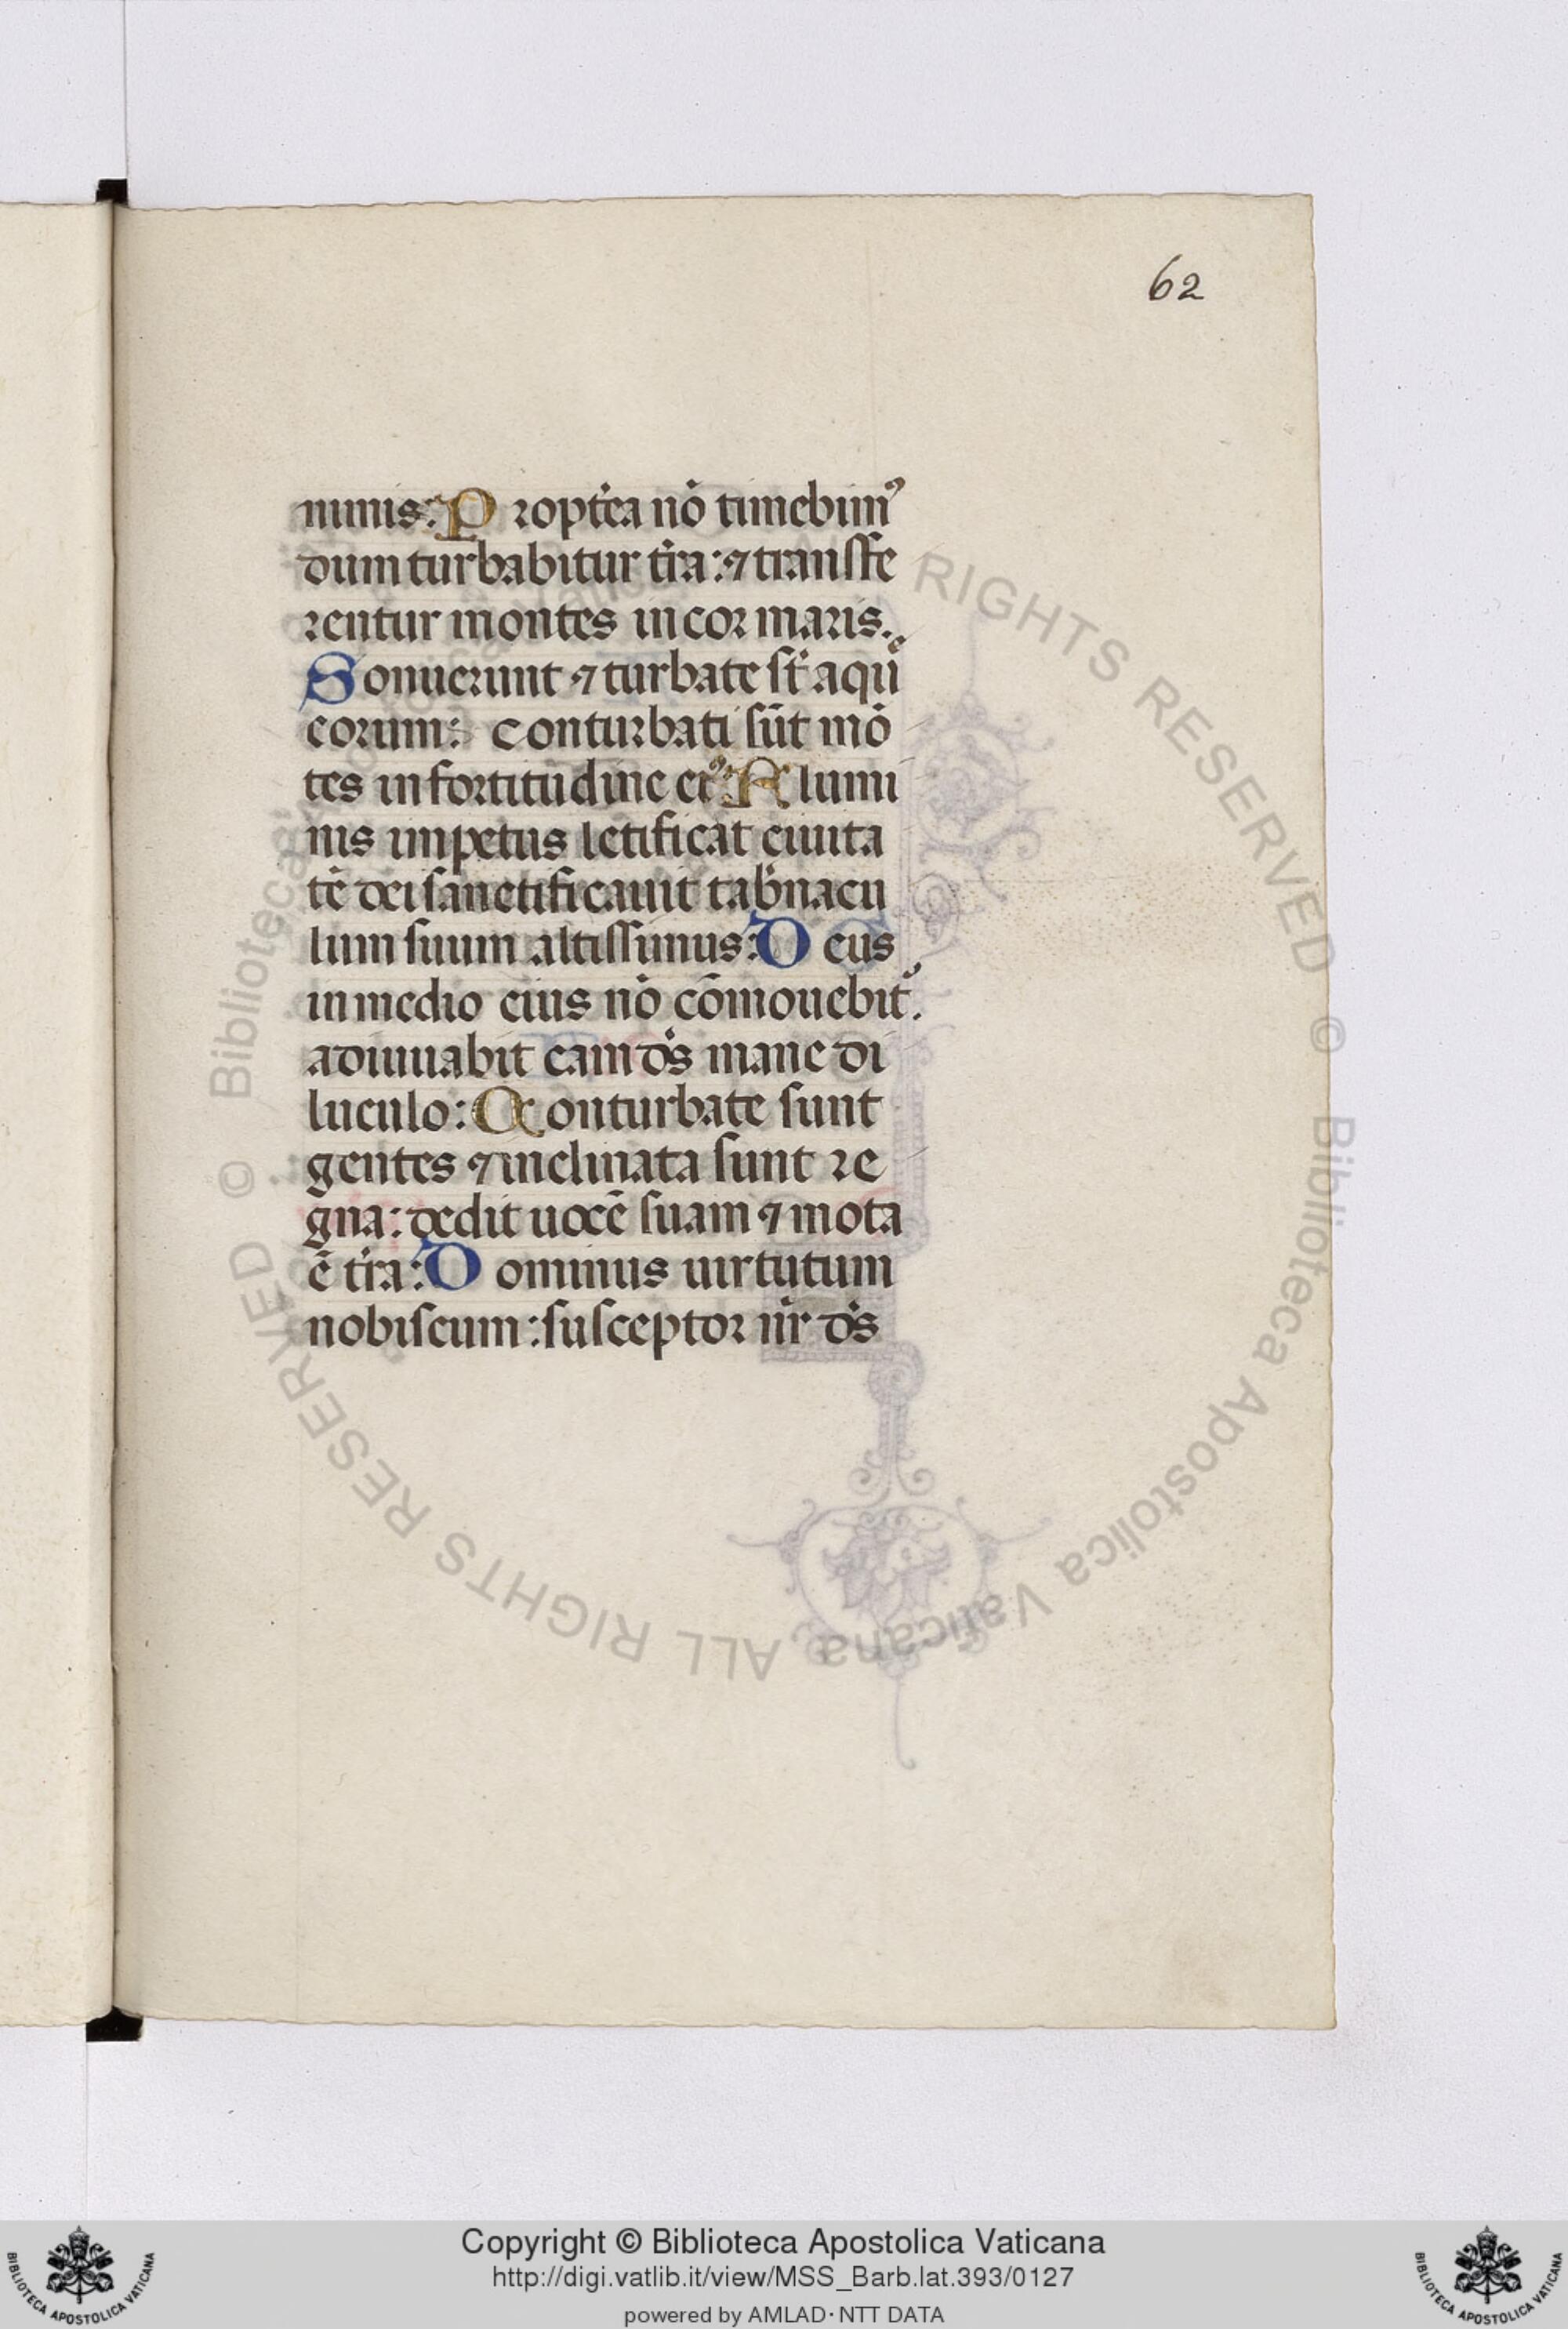 62
nimis: Propt̉ea nō timebimꝰ
dum turbabitur tr̉ra: ⁊ transfe
rentur montes in cor maris.
Sonuerunt ⁊ turbate st̉ aqu̅e
eorum: conturbati sūt mō
tes in fortitudine eiꝰ: Flumi
nis impetus letificat ciuita
tē dei sanctificauit tab̉nacu
lum suum altissimus: Deus
in medio eius nō cōmouebit᷑.
adiuuabit eam d̉s mane di
luculo: Conturbate sunt
gentes ⁊ inclinata sunt re
gna: dedit uocē suam ⁊ mota
ē tr̉ra: Dominus uirtutum
nobiscum: susceptor nr̉ d̉s
© Biblioteca Apostolica Vaticana, ALL RIGHTS RESERVED
© Biblioteca Apostolica Vaticana, ALL RIGHTS RESERVED
Copyright © Biblioteca Apostolica Vaticana
http://digi.vatlib.it/view/MSS_Barb.lat.393/0127
powered by AMLAD·NTT DATA
BIBLIOTECA APOSTOLICA VATICANA
BIBLIOTECA APOSTOLICA VATICANA